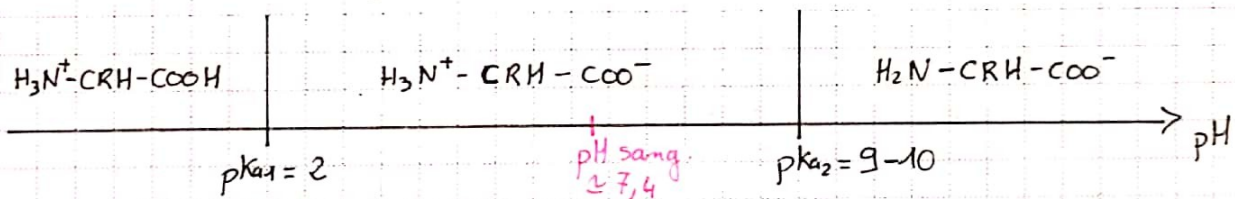 H₃N⁺-CRH-COOH
H₃N⁺- CRH - COO⁻
H₂N - CRH - COO⁻
pH
pKa₁ = 2
pH sang
≃ 7,4
pKa₂ = 9-10